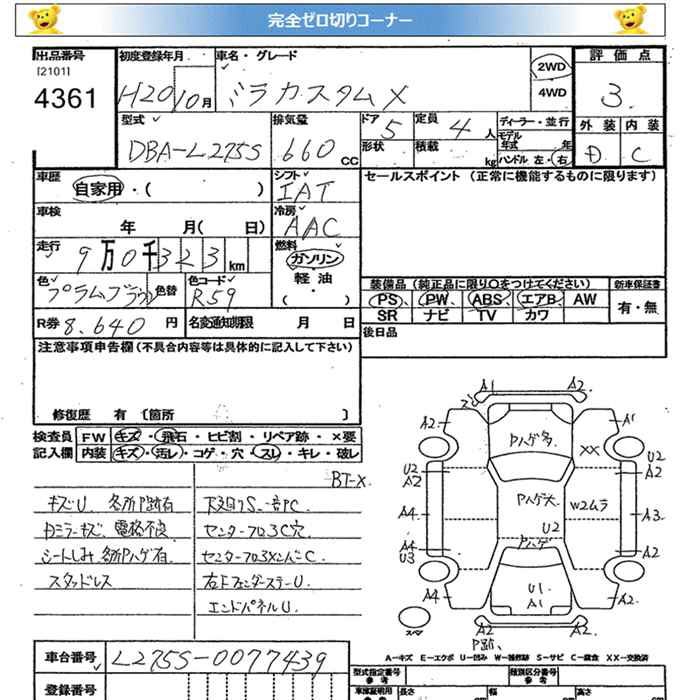 完全ゼロ切りコーナー
出品番号 [2101] 4361
初度登録年月 H20 10月
車名・グレード ミラカスタム X
2WD
4WD
評価点 3.
外装 内装
D C
型式 DBA-L275S
排気量 660 CC
ドア 5
形状
定員 4 人
積載 kg
ディーラー・並行
モデル年式 年
ハンドル 左・右
車歴 自家用・( )
シフト IAT
セールスポイント (正常に機能するものに限ります)
車検 年 月( 日)
冷房 AAC
走行 9万0千323 km
燃料 ガソリン
軽油
・( )
色 プラムブラウン 色替
色コード R59
装備品 (純正品に限り○をつけてください)
新車保証書
PS PW ABS エアB AW
SR ナビ TV カワ
有・無
R券 8,640 円
名変通知期限 月 日
後日品
注意事項申告欄(不具合内容等は具体的に記入して下さい)
修復歴 有 〔箇所 〕
検査員記入欄
FW キズ・飛石・ヒビ割・リペア跡・×要
内装 キズ・汚レ・コゲ・穴・スレ・キレ・破レ
BT-X
キズU 各所P跡有
シートしみ 各所Pハゲ有
スタッドレス
センターフロアC穴
エンドパネルU.
A1 A2
A2 A1
Pハゲ多
XX
U2 A2
U2 A2
Pハゲ大
W2ムラ
A4 A3
U2
Pハゲ
A4 U3
A2
U1 A1
A4 A2
A2 A2
P跡、
スペア
A-キズ E-エクボ U-凹み W-補修跡 S-サビ C-腐食 XX-交換済
車台番号 L275S-0077439
登録番号
型式指定番号 参考
類別区分番号 参考
長さ cm 幅 cm 高さ cm